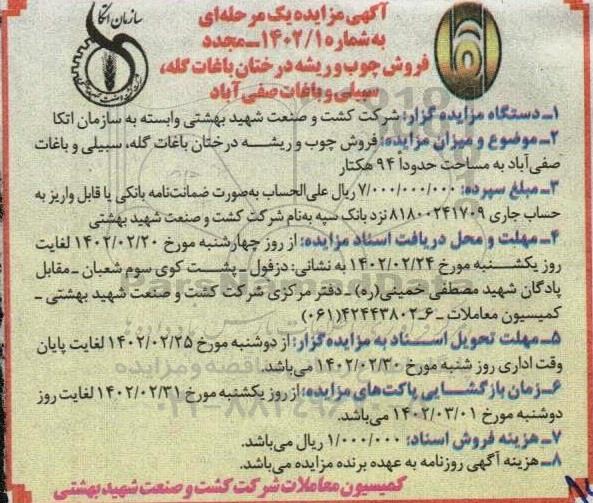 سازمان اتکا
آگهی مزایده یک مرحله‌ای
به شماره ۱۴۰۲/۱ـ مجدد
فروش چوب و ریشه درختان باغات گله،
سبیلی و باغات صفی آباد
۱ـ دستگاه مزایده گزار: شرکت کشت و صنعت شهید بهشتی وابسته به سازمان اتکا
۲ـ موضوع و میزان مزایده: فروش چوب و ریشه درختان باغات گله، سبیلی و باغات
صفی‌آباد به مساحت حدوداً ۹۴ هکتار
۳ـ مبلغ سپرده: ۷/۰۰۰/۰۰۰/۰۰۰ ریال علی‌الحساب به‌صورت ضمانت‌نامه بانکی یا قابل واریز به
حساب جاری ۸۱۸۰۰۲۴۱۷۰۹ نزد بانک سپه به‌نام شرکت کشت و صنعت شهید بهشتی
۴ـ مهلت و محل دریافت اسناد مزایده: از روز چهارشنبه مورخ ۱۴۰۲/۰۲/۲۰ لغایت
روز یکشنبه مورخ ۱۴۰۲/۰۲/۲۴ به نشانی: دزفول ـ پشت کوی سوم شعبان ـ مقابل
پادگان شهید مصطفی خمینی(ره) ـ دفتر مرکزی شرکت کشت و صنعت شهید بهشتی ـ
کمیسیون معاملات ـ ۶ـ۴۲۴۴۳۸۰۲(۰۶۱)
۵ـ مهلت تحویل اسناد به مزایده گزار: از دوشنبه مورخ ۱۴۰۲/۰۲/۲۵ لغایت پایان
وقت اداری روز شنبه مورخ ۱۴۰۲/۰۲/۳۰ می‌باشد.
۶ـ زمان بازگشایی پاکت‌های مزایده: از روز یکشنبه مورخ ۱۴۰۲/۰۲/۳۱ لغایت روز
دوشنبه مورخ ۱۴۰۲/۰۳/۰۱ می‌باشد.
۷ـ هزینه فروش اسناد: ۱/۰۰۰/۰۰۰ ریال می‌باشد.
۸ـ هزینه آگهی روزنامه به عهده برنده مزایده می‌باشد.
کمیسیون معاملات شرکت کشت و صنعت شهید بهشتی